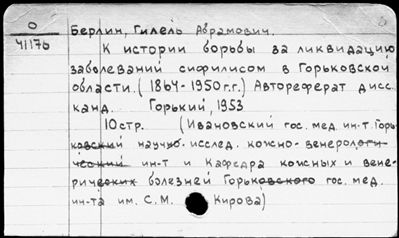 О
41176
Берлин, Гилель Абрамович.
К истории борьбы за ликвидацию
заболеваний сифилисом в Горьковской
области. (1864-1950 г.г.) Автореферат дисс.
канд. Горький, 1953
10стр. (Ивановский гос. мед. ин-т. Горь-
ковский научно. исслед. кожно-венерологи-
ческий ин-т и Кафедра кожных и вене-
рических болезней Горьковского гос. мед.
ин-та им. С.М. Кирова)